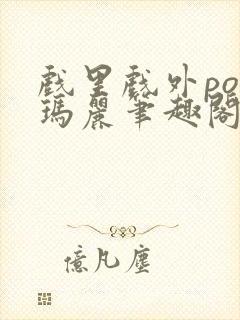 戲里戲外po
瑪麗筆趣閣
億凡塵